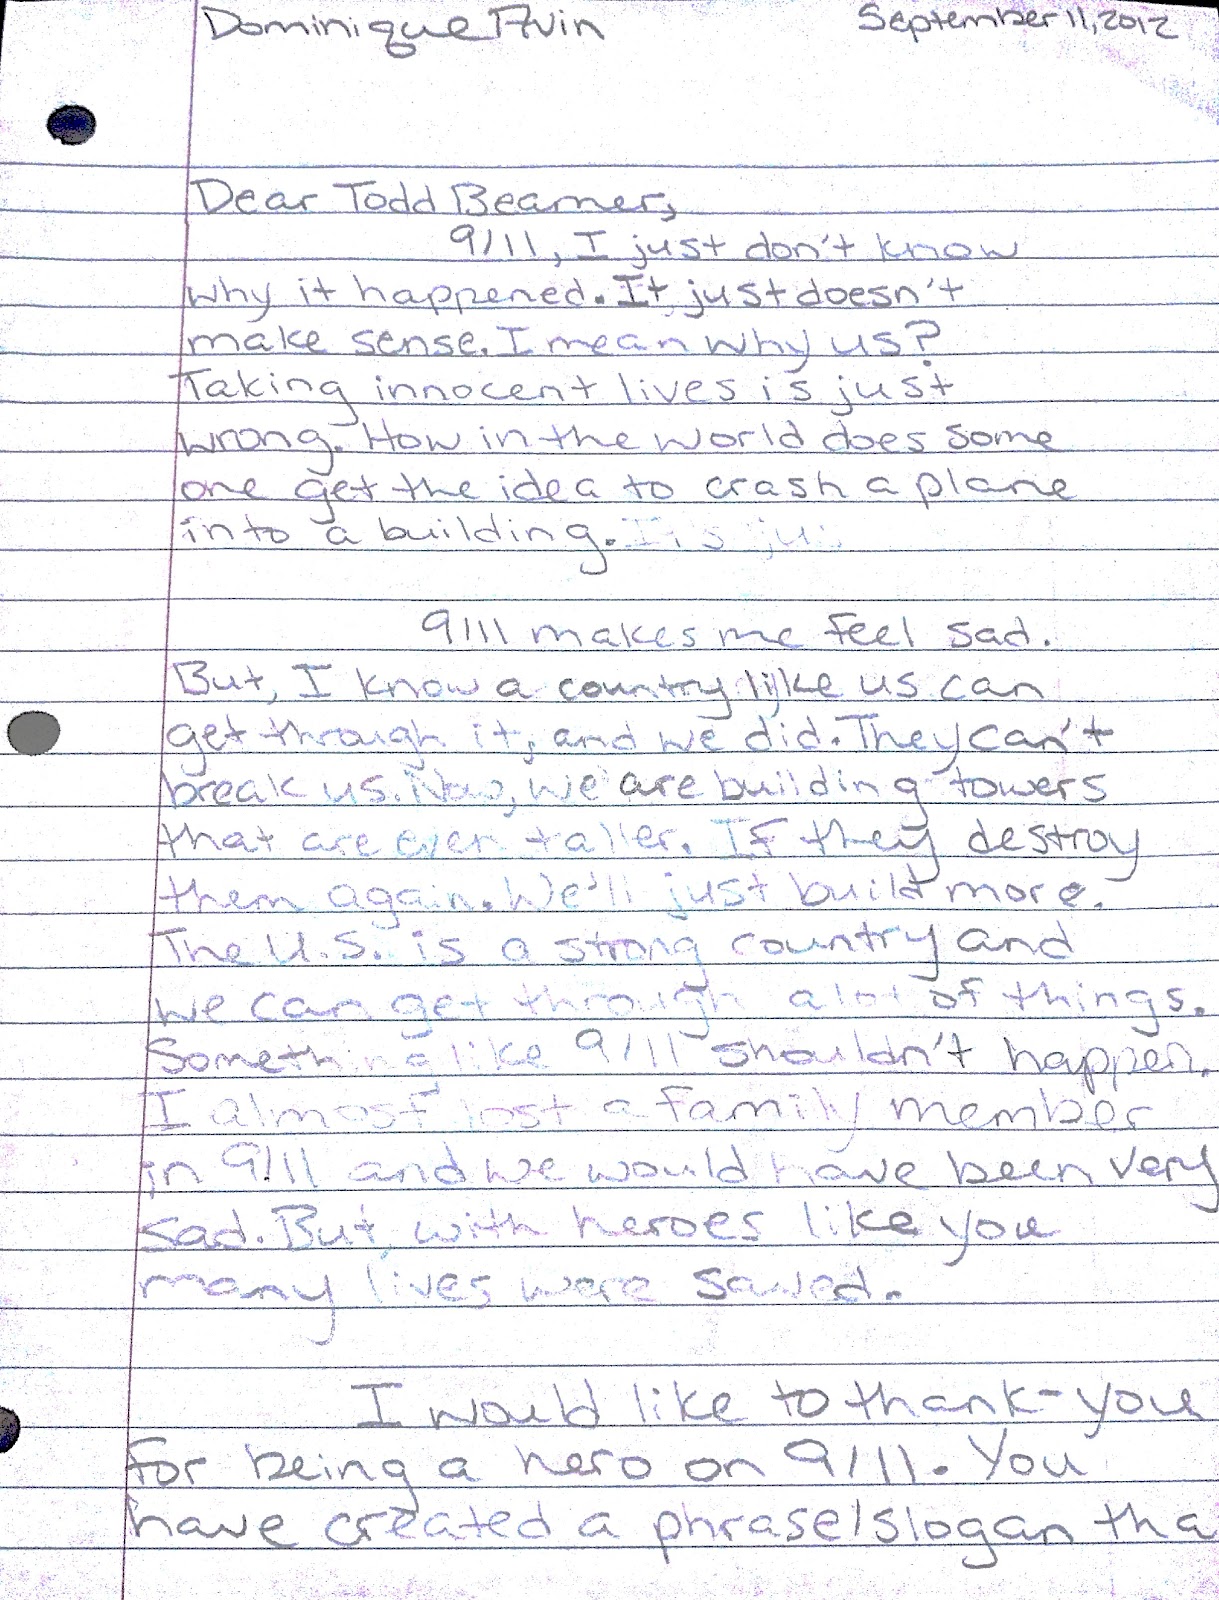 Dominique Avin September 11, 2012
Dear Todd Beamer,
9/11, I just don't know
why it happened. It just doesn't
make sense. I mean why us?
Taking innocent lives is just
wrong. How in the world does some
one get the idea to crash a plane
into a building. It's ju
9/11 makes me feel sad.
But, I know a country like us can
get through it, and we did. They can't
break us. Now, we are building towers
that are even taller. If they destroy
them again. We'll just build more.
The U.S. is a strong country and
we can get through a lot of things.
Something like 9/11 shouldn't happen.
I almost lost a family member
in 9/11 and we would have been very
sad. But, with heroes like you
many lives were saved.
I would like to thank-you
for being a hero on 9/11. You
have created a phrase/slogan tha